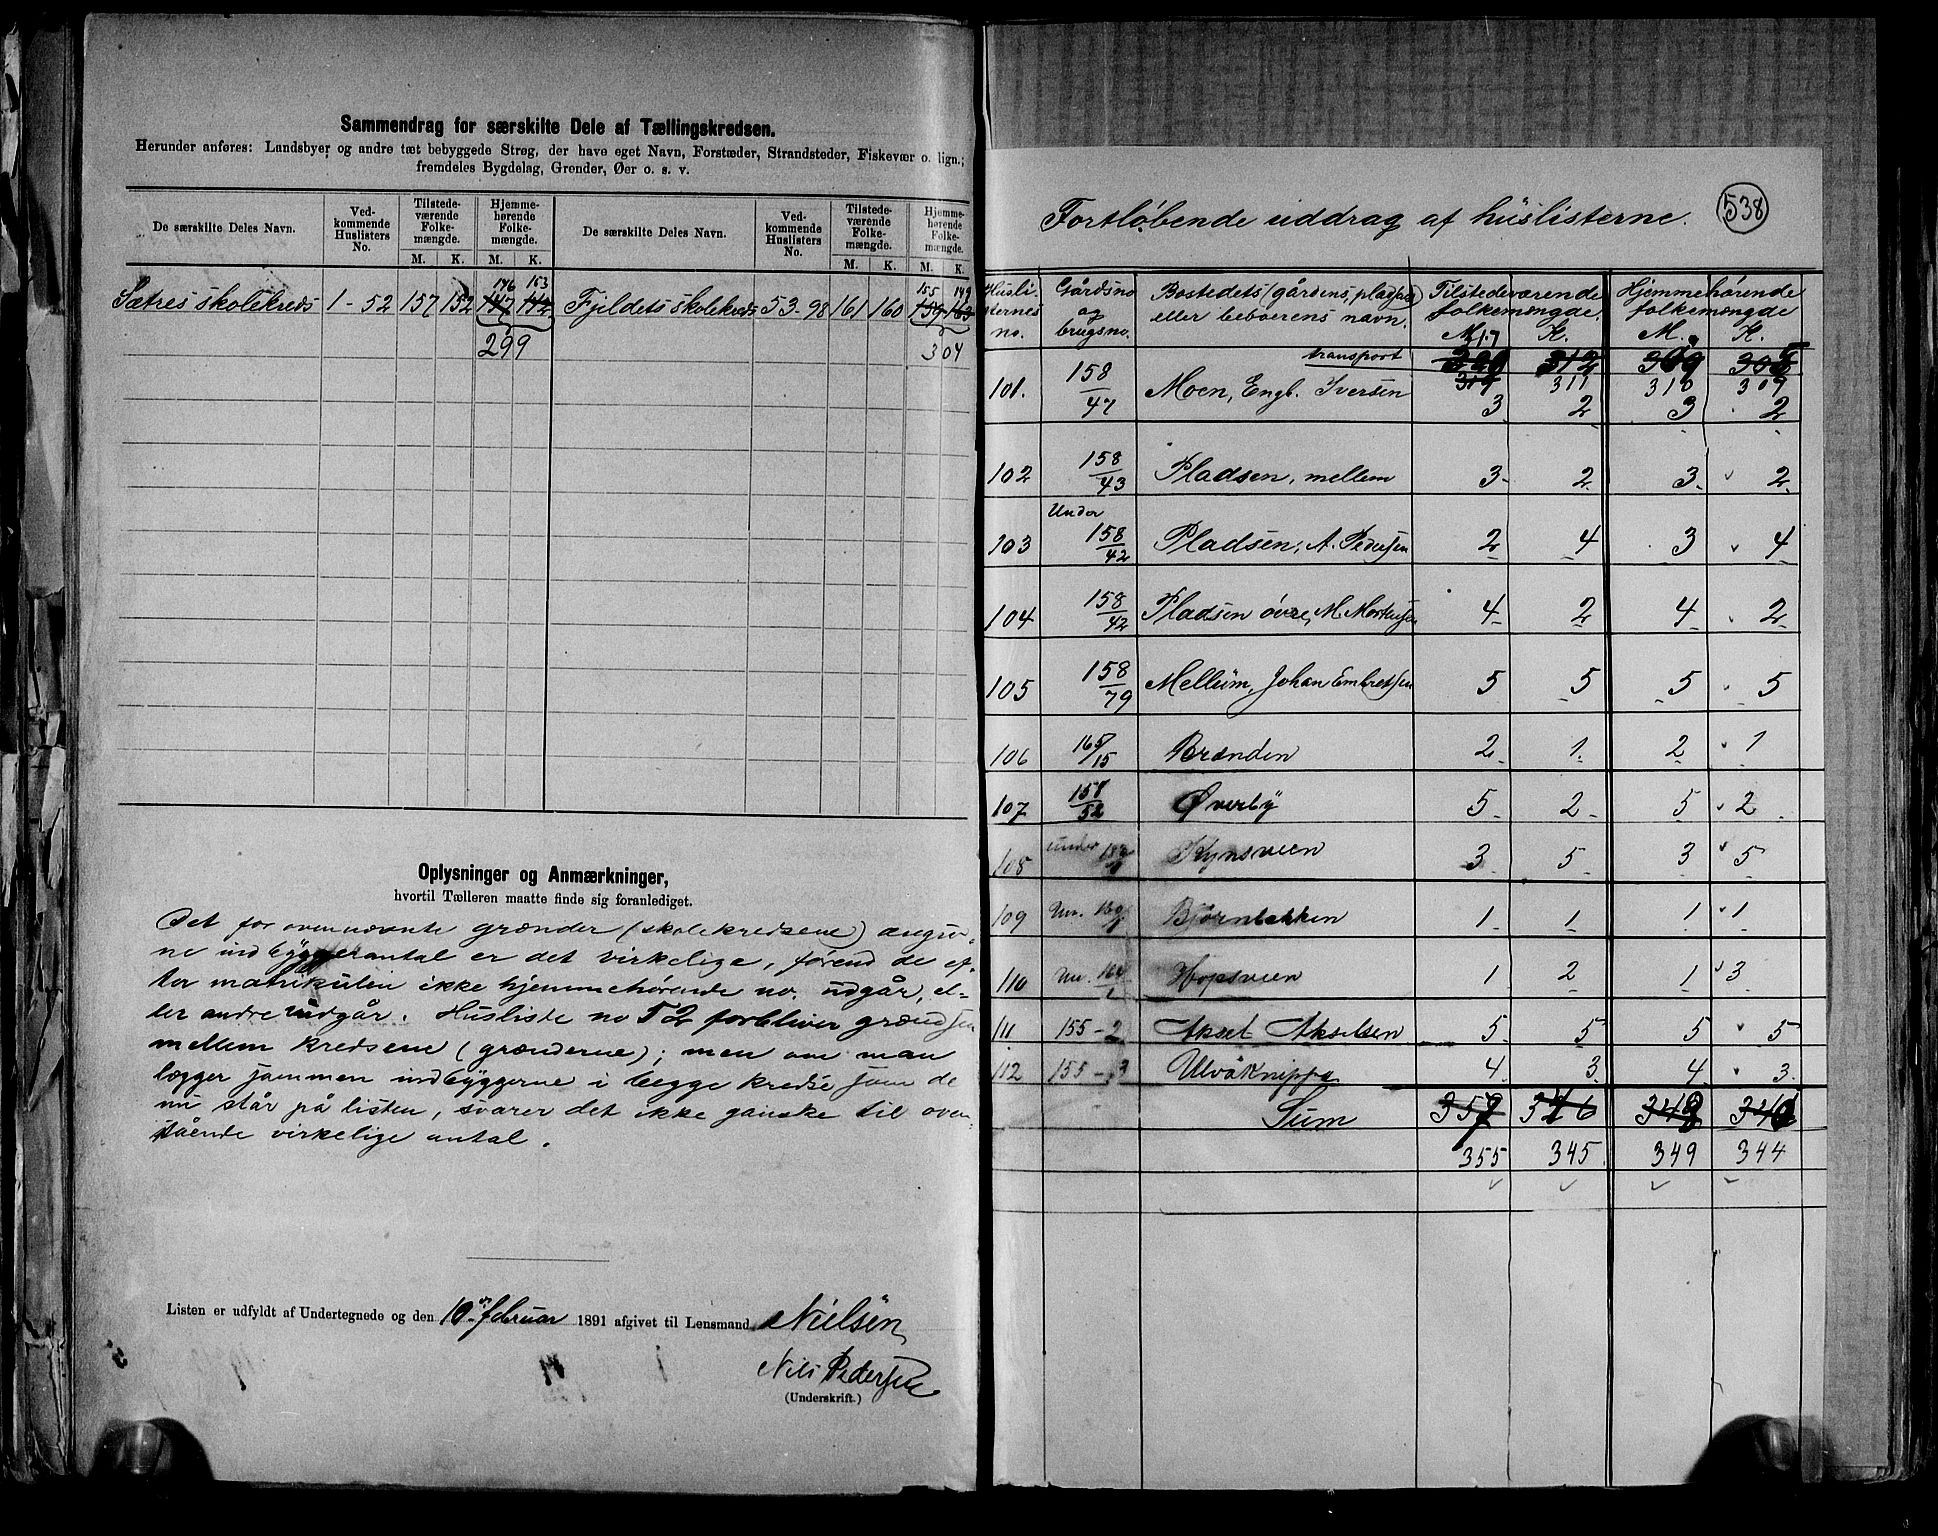 Sammendrag for særskilte Dele af Tællingskredsen.
Herunder anføres: Landsbyer og andre tæt bebyggede Strøg, der have eget Navn, Forstæder, Strandsteder, Fiskevær o. lign.;
fremdeles Bygdelag, Grender, Øer o. s. v.
De særskilte Deles Navn. Ved-kommende Huslisters No. Tilstede-værende Folke-mængde. Hjemme-hørende Folke-mængde. De særskilte Deles Navn. Ved-kommende Huslisters No. Tilstede-værende Folke-mængde. Hjemme-hørende Folke-mængde.
M. K. M. K. M. K. M. K.
146 153 155 149
Sætres skolekreds 1-52 157 152 147 142 Fjeldets skolekreds 53-98 161 160 159 163
299 304
Oplysninger og Anmærkninger,
hvortil Tælleren maatte finde sig foranlediget.
Det for ovennævnte grænder (skolekredsene) angiv-
ne indbyggerantal er det virkelige, førend de ef-
ter matrikulen ikke hjemmehørende no. udgår, el-
ler andre indgår. Husliste no 52 forbliver grændsen
mellem kredsene (grænderne); men om man
lægger sammen indbyggerne i begge kredse som de
nu står på listen, svarer det ikke ganske til oven-
stående virkelige antal.
Listen er udfyldt af Undertegnede og den 10de februar 1891 afgivet til Lensmand Nielsen
Nils Pedersen
(Underskrift.)
Fortløbende uddrag af huslisterne. 538
Husli sternes no. Gårdsno og brugsno. Bostedets (gårdens, pladsens) eller beboerens navn. Tilstedeværende folkemængde. Hjemmehørende folkemængde
M. K. M. K.
transport 312
311 310 307
101. 158/47 Moen, Engb. Iversen 3 2 3 2
102 158/43 Pladsen, mellem 3 2 3 2
103 Under 158/42 Pladsen, A. Pedersen 2 4 3 4
104 158/42 Pladsen øvre, M. Mortensen 4 2 4 2
105 158/79 Mellum, Johan Embretsen 5 5 5 5
106 165/15 Brænden 2 1 2 1
107 158/52 Øverby 5 2 5 2
108 under Kynsveen 3 5 3 5
109 Un. Bjørnbakken 1 1 1 1
110 Un. Hopsveen 1 2 1 3
111 155-2 Aksel Akselsen 5 5 5 5
112 155-3 Ulvåknippa 4 3 4 3
Sum 357 346
355 345 349 344